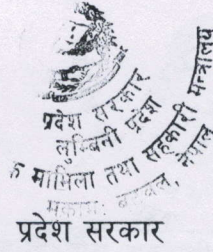 प्रदेश सरकार
लुम्बिनी प्रदेश
मामिला तथा सहकारी मन्त्रालय
नेपाल
प्रदेश सरकार